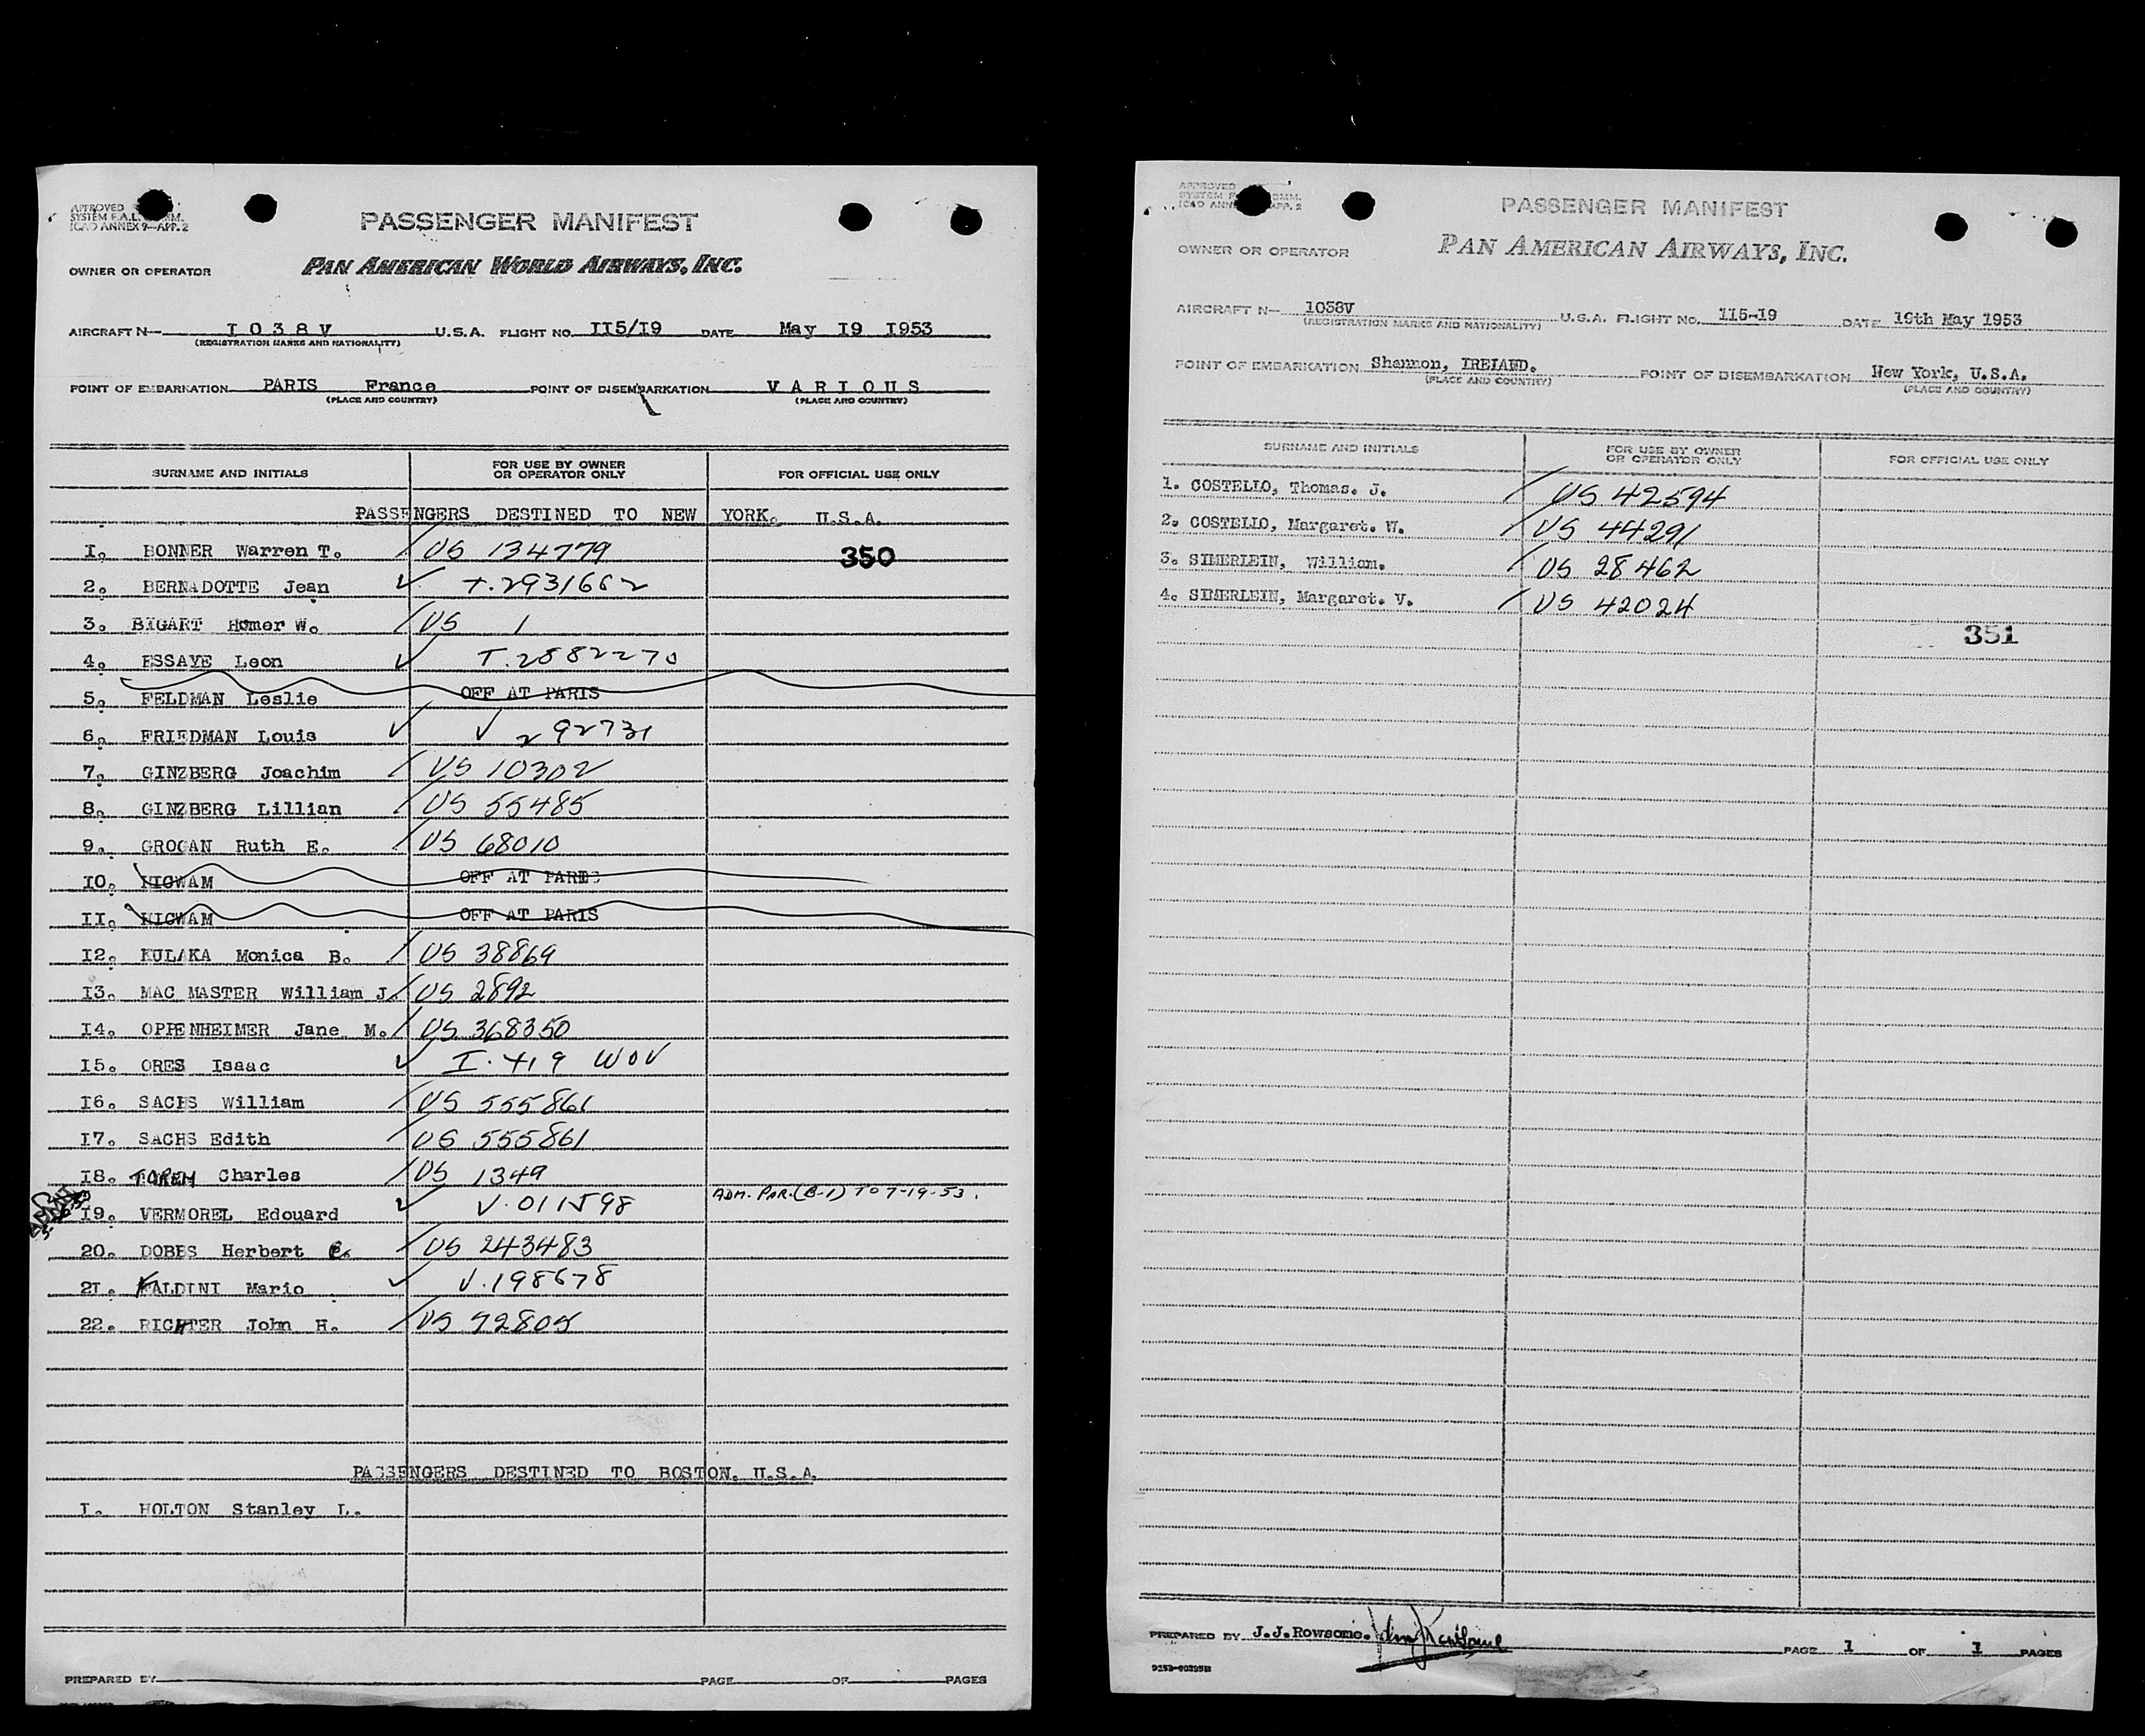 APPROVED
SYSTEM F.A.L. MM.
ICAO ANNEX 9—APP. 2
PASSENGER MANIFEST
OWNER OR OPERATOR PAN AMERICAN WORLD AIRWAYS, INC.
AIRCRAFT N— I 0 3 8 V U.S.A. FLIGHT NO. II5/I9 DATE May I9 I953
(REGISTRATION MARKS AND NATIONALITY)
POINT OF EMBARKATION PARIS France POINT OF DISEMBARKATION V A R I O U S
(PLACE AND COUNTRY) (PLACE AND COUNTRY)
SURNAME AND INITIALS FOR USE BY OWNER OR OPERATOR ONLY FOR OFFICIAL USE ONLY
PASSENGERS DESTINED TO NEW YORK. U.S.A.
I. BONNER Warren T. / US 134779 350
2. BERNADOTTE Jean ✓ T.2931662
3. BIGART Homer W. / US 1
4. ESSAYE Leon ✓ T.2882270
5. FELDMAN Leslie OFF AT PARIS
6. FRIEDMAN Louis ✓ V 292731
7. GINZBERG Joachim / US 10302
8. GINZBERG Lillian / US 55485
9. GROGAN Ruth E. / US 68010
I0. OFF AT PARIS
II. OFF AT PARIS
I2. KULAKA Monica B. / US 38869
I3. MAC MASTER William J. / US 2892
I4. OPPENHEIMER Jane M. / US 368350
I5. ORES Isaac ✓ I.419 WOV
I6. SACHS William / US 555861
I7. SACHS Edith / US 555861
I8. TOREM Charles / US 1349
I9. VERMOREL Edouard ✓ V.011598 ADM. PAR. (B-1) TO 7-19-53.
20. DOBBS Herbert C. / US 243483
2I. FALDINI Mario ✓ V.198678
22. RICHTER John H. / US 92805
PASSENGERS DESTINED TO BOSTON. U.S.A.
I. HOLTON Stanley L.
PREPARED BY PAGE OF PAGES
APPROVED
SYSTEM F MM.
ICAO ANN APP. 2
PASSENGER MANIFEST
OWNER OR OPERATOR PAN AMERICAN AIRWAYS, INC.
AIRCRAFT N— 1038V U.S.A. FLIGHT NO. 115-19 DATE 19th May 1953
(REGISTRATION MARKS AND NATIONALITY)
POINT OF EMBARKATION Shannon, IRELAND. POINT OF DISEMBARKATION New York, U.S.A.
(PLACE AND COUNTRY) (PLACE AND COUNTRY)
SURNAME AND INITIALS FOR USE BY OWNER OR OPERATOR ONLY FOR OFFICIAL USE ONLY
1. COSTELLO, Thomas. J. / US 42594
2. COSTELLO, Margaret. W. / US 44291
3. SIMERLEIN, William. / US 28462
4. SIMERLEIN, Margaret. V. / US 42024
351
PREPARED BY J.J.Rowsome. PAGE 1 OF 1 PAGES